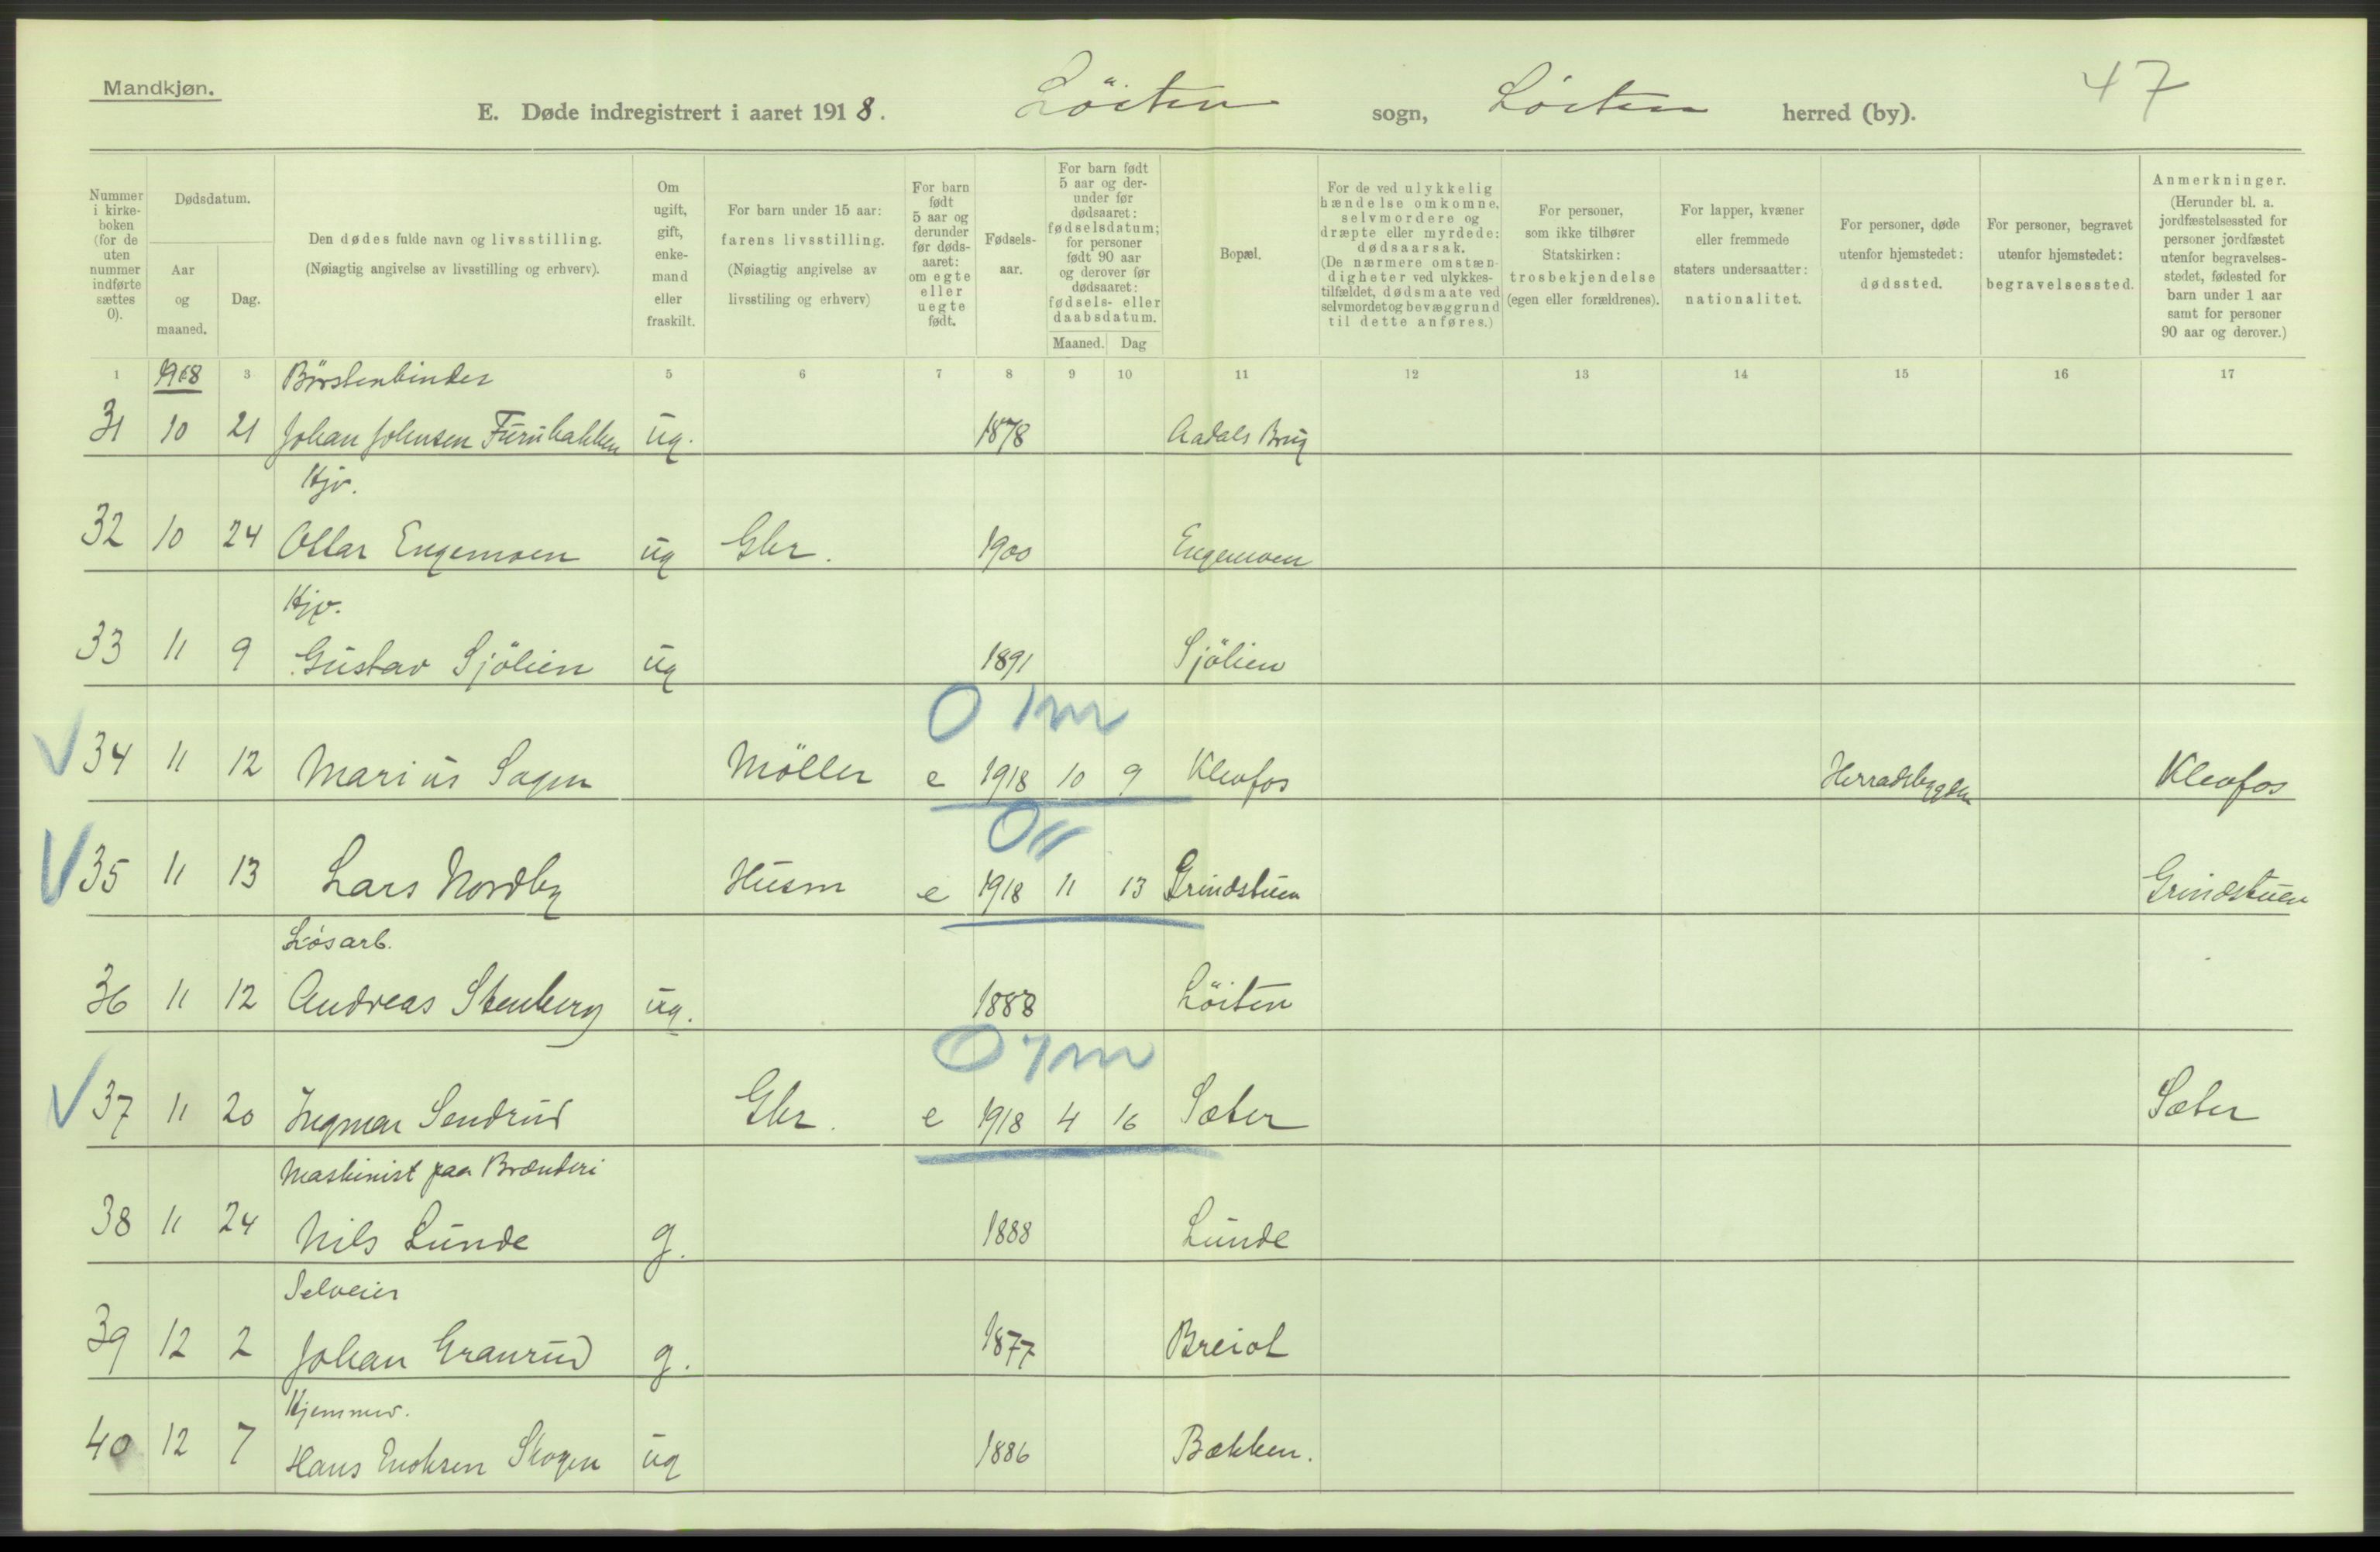 Mandkjøn.
47
E. Døde indregistrert i aaret 1918. Löiten sogn, Löiten herred (by).
Nummer i kirke-boken (for de uten nummer indførte sættes 0).
Dødsdatum.
Aar og maaned.
Dag.
Den dødes fulde navn og livsstilling.
(Nøiagtig angivelse av livsstilling og erhverv).
Om ugift, gift, enke-mand eller fraskilt.
For barn under 15 aar: farens livsstilling.
(Nøiagtig angivelse av livsstiling og erhverv)
For barn født 5 aar og derunder før døds-aaret: om egte eller uegte født.
Fødsels-aar.
For barn født 5 aar og der-under før dødsaaret: fødselsdatum; for personer født 90 aar og derover før dødsaaret: fødsels- eller daabsdatum.
Maaned. Dag
Bopæl.
For de ved ulykkelig hændelse omkomne, selvmordere og dræpte eller myrdede: dødsaarsak.
(De nærmere omstæn-digheter ved ulykkes-tilfældet, dødsmaate ved selvmordet og bevæggrund til dette anføres.)
For personer, som ikke tilhører Statskirken: trosbekjendelse (egen eller forældrenes).
For lapper, kvæner eller fremmede staters undersaatter: nationalitet.
For personer, døde utenfor hjemstedet: dødssted.
For personer, begravet utenfor hjemstedet: begravelsessted.
Anmerkninger.
(Herunder bl. a. jordfæstelsessted for personer jordfæstet utenfor begravelses-stedet, fødested for barn under 1 aar samt for personer 90 aar og derover.)
1 1918 3 Börstenbinder 5 6 7 8 9 10 11 12 13 14 15 16 17
31 10 21 Johan Johnsen Furubakken ug. 1878 Aadals Brug
Hjv.
32 10 24 Ottar Engemoen ug Gbr. 1900 Engemoen
Hjv.
33 11 9 Gustav Sjölien ug 1891 Sjölien
0 1m
V 34 11 12 Marius Sagen Möller e 1918 10 9 Klevfos Herradsbygden Klevfos
0 11
V 35 11 13 Lars Nordby Husm e 1918 11 13 Grindstuen Grindstuen
Lösarb.
36 11 12 Andreas Stenberg ug. 1888 Löiten
0 7m
V 37 11 20 Ingmar Sendrud Gbr. e 1918 4 16 Sæter Sæter
Maskinist paa Brænderi
38 11 24 Nils Lunde g. 1888 Lunde
Selveier
39 12 2 Johan Granrud g. 1877 Breiol
Hjemmev.
40 12 7 Hans Enoksen Skogen ug 1886 Bækken.